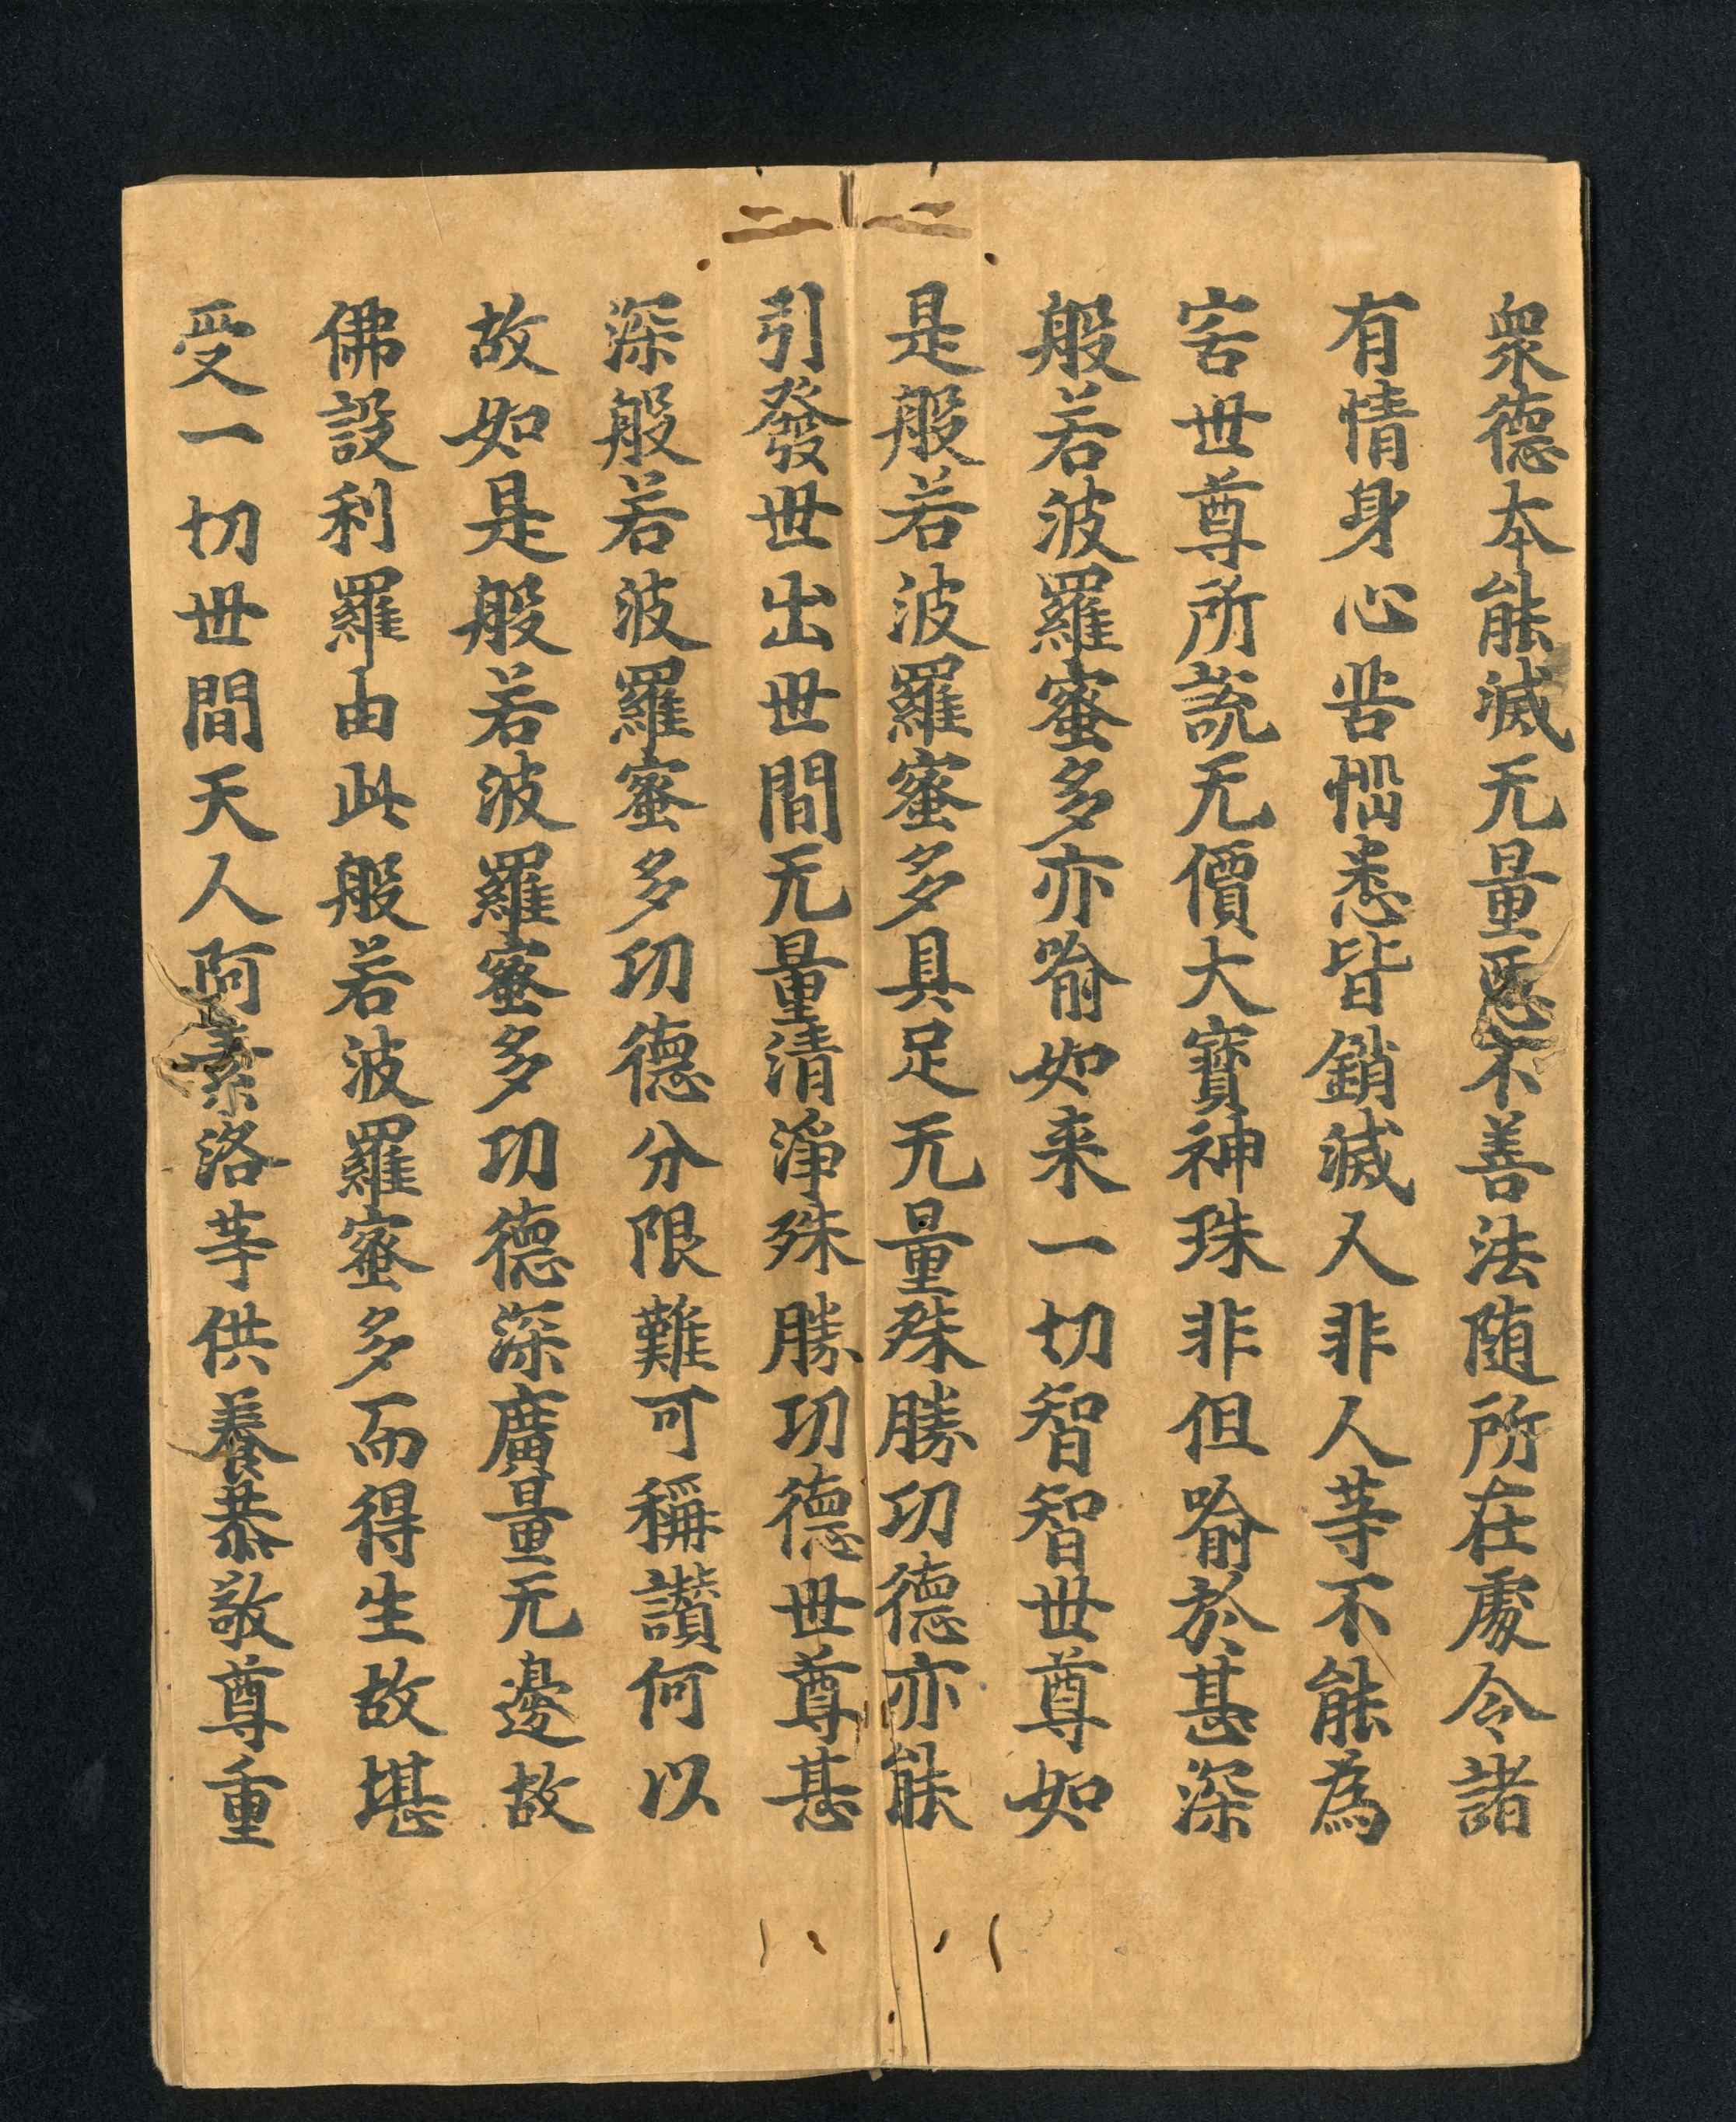 衆德本能滅无量惡不善法随所在處令諸
有情身心苦惱悉皆銷滅人非人等不能為
害世尊所說无價大寶神珠非但喻於甚深
般若波羅蜜多亦喻如来一切智智世尊如
是般若波羅蜜多具足无量殊勝功德亦能
引發世出世間无量清淨殊勝功德世尊甚
深般若波羅蜜多功德分限難可稱讚何以
故如是般若波羅蜜多功德深廣量无邊故
佛設利羅由此般若波羅蜜多而得生故堪
受一切世間天人阿素洛等供養恭敬尊重